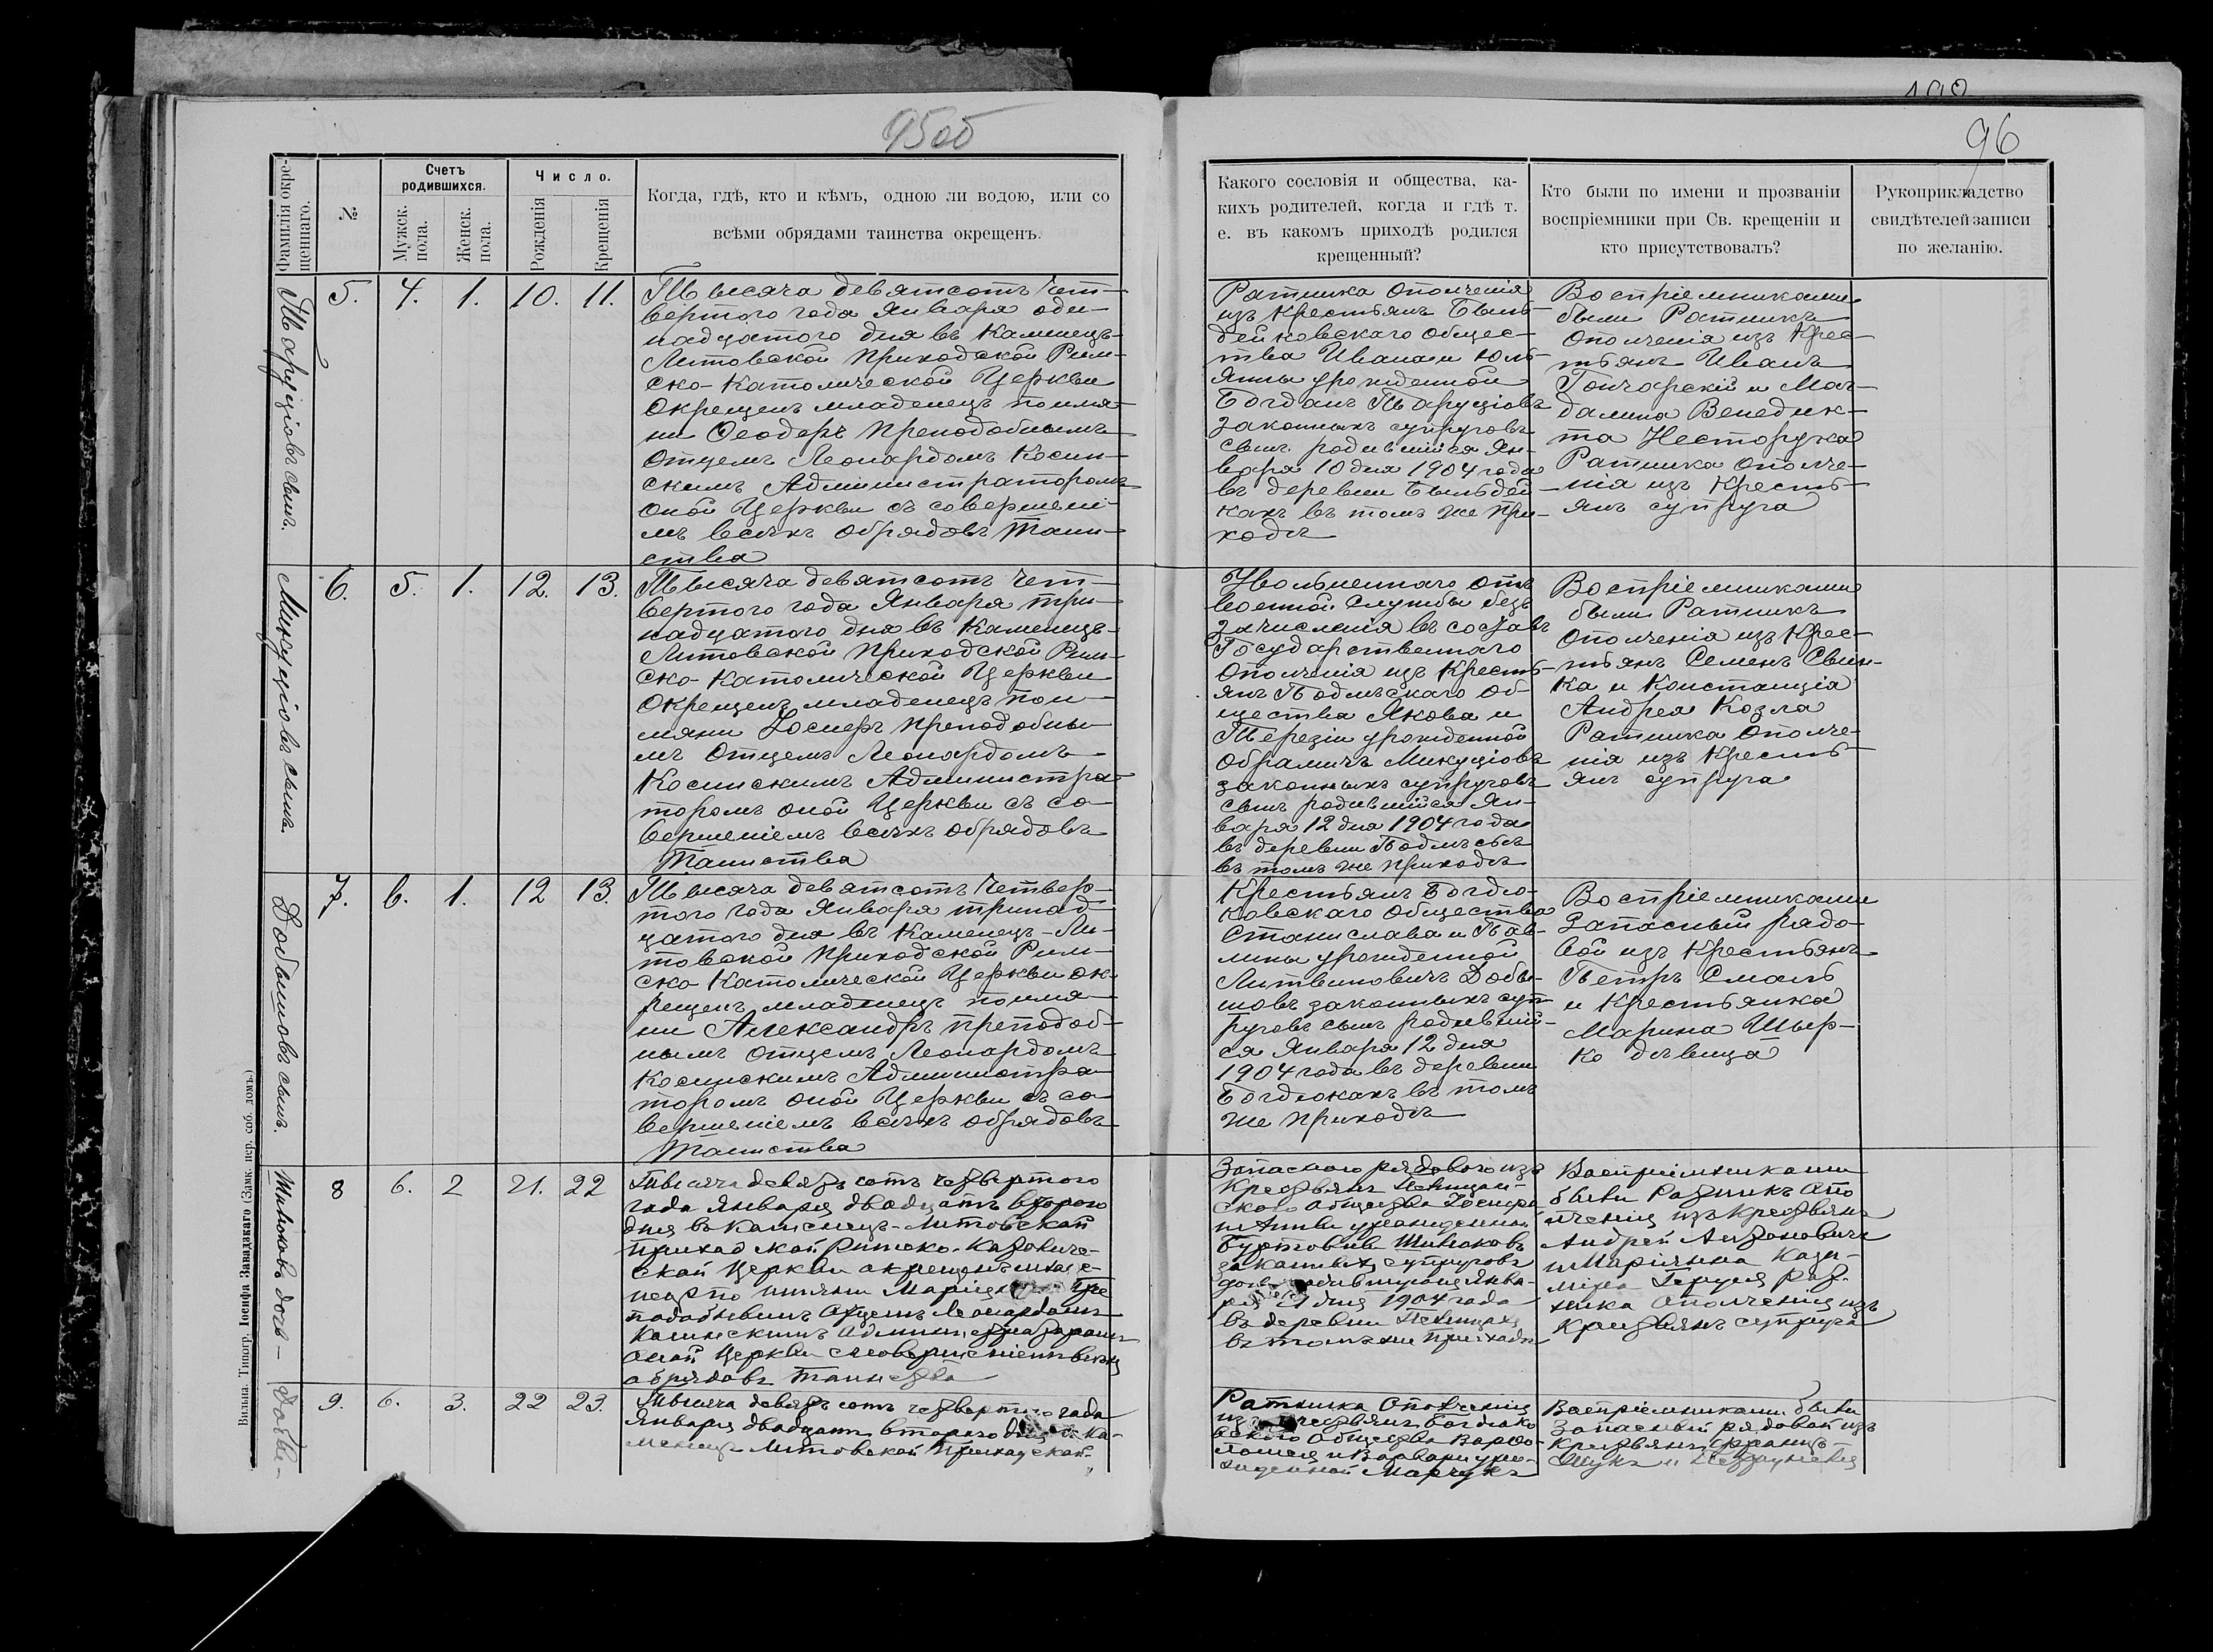 95об
Фамилія окре-
щеннаго.
№
Счетъ
родившихся.
Мужск.
пола.
Женск.
пола.
Число.
Рожденія
Крещенія
Когда, гдѣ, кто и кѣмъ, одною ли водою, или со
всѣми обрядами таинства окрещенъ.
Таруціовъ сынъ.
5. 4. 1. 10. 11.
Тысяча девятсотъ Чет-
вертого года Января оди-
надцатого дня въ Каменецъ-
Литовской Приходской Рим-
ско-Католической Церкви
Окрещенъ младенецъ по имя-
ни Ѳеодоръ Преподобнымъ
Отцемъ Леонардомъ Косин-
скимъ Администраторомъ
оной Церкви съ совершені-
мъ всѣхъ обрядовъ Таин-
ства
Микуціовъ сынъ.
6. 5. 1. 12. 13.
Тысяча девятсотъ Чет-
вертого года Января три-
надцатого дня въ Каменецъ-
Литовской Приходской Рим-
ско-Католической Церкви
Окрещенъ младенецъ по и-
мяни Іосифъ Преподобны-
мъ Отцемъ Леонардомъ
Косинскимъ Администра-
торомъ оной Церкви съ со-
вершеніемъ всѣхъ обрядовъ
Таинства
Добышовъ сынъ.
7. 6. 1. 12 13.
Тысяча девятсотъ Четвер-
того года Января тринад-
цатого дня въ Каменецъ-Ли-
товской Приходской Рим-
ско Католической Церкви ок-
рещенъ младенецъ по имя-
ни Александръ Преподоб-
нымъ Отцемъ Леонардомъ
Косинскимъ Администра-
торомъ оной Церкви съ со-
вершеніемъ всѣхъ обрядовъ
Таинства
дочь -
8 6. 2 21. 22
Тысяча девять сотъ четвертого
года Января двадцать второго
дня въ Каменецъ-Литовской
Приходской Римско-Католиче-
ской Церкви окрещенъ младе-
нецъ по имяни Марія Пре-
подобнымъ Отцемъ Леонардомъ
Косинскимъ Администраторомъ
оной Церкви съ совершеніемъ всѣхъ
обрядовъ Таинства
9. 6. 3. 22 23.
Тысяча девять сотъ четвертого года
Января двадцать второго дня въ Ка-
менецъ-Литовской Приходской
Вильна. Типогр. Іосифа Завадзкаго (Замк. пер. соб. домъ.)
96
Какого сословія и общества, ка-
кихъ родителей, когда и гдѣ т.
е. въ какомъ приходѣ родился
крещенный?
Кто были по имени и прозваніи
воспріемники при Св. крещеніи и
кто присутствовалъ?
Рукоприкладство
свидѣтелей записи
по желанію.
Ратника Ополченія
изъ Крестьянъ Быль-
дейковскаго Общес-
тва Ивана и Юль-
янны урожденной
Богданъ Таруціовъ
законныхъ супруговъ
сынъ родившійся Ян-
варя 10 дня 1904 года
въ деревни Быльдей-
кахъ въ томъ же При-
ходѣ
Воспріемниками
были Ратникъ
Ополченія изъ Крес-
тьянъ Иванъ
Гончарскій и Маг-
далина Венедик-
та Несторука
Ратника Ополче-
нія изъ Кресть-
янъ супруга
Увольненнаго отъ
военной Службы безъ
зачисленія въ составъ
Государственнаго
Ополченія изъ Кресть-
янъ Подлѣскаго Об-
щества Якова и
Терезіи урожденной
Обрамичъ Микуціовъ
законныхъ супруговъ
сынъ родившійся Ян-
варя 12 дня 1904 года
въ деревни Подлѣсьѣ
въ томъ же Приходѣ
Воспріемниками
были Ратникъ
Ополченія изъ Крес-
тьянъ Семенъ Свин-
ка и Констанція
Андрея Козла
Ратника Ополче-
нія изъ Кресть-
янъ супруга
Крестьянъ Богдю-
ковскаго Общества
Станислава и Пав-
лины урожденной
Литвиновичъ Добы-
шовъ законныхъ суп-
руговъ сынъ родивший-
ся Января 12 дня
1904 года въ деревни
Богдюкахъ въ томъ
же Приходѣ
Воспріемниками
Запасный рядо-
вой изъ Крестьянъ
Петръ Смаль
и Крестьянка
Марина Шыр-
ко дѣвица
Запасного рядового изъ
Крестьянъ
ского Общества Іосифа
и Анны урожденной
законныхъ супруговъ
дочь родившуюся Янва-
ря 21 дня 1904 года
въ деревни
въ томъ же Приходѣ
Воспріемниками
были Ратникъ Опо
лченія изъ Крестьянъ
Андрей Антоновичъ
и Маріянна Кази-
міра Рат-
ника Ополченія изъ
Крестьянъ супруга
Ратника Ополченія
изъ Крестьянъ Богдюко
вского Общества Варѳо-
ломея и Варвары уро-
жденной Марчукъ
Воспріемниками были
Запасный рядовой изъ
Крестьянъ Францъ